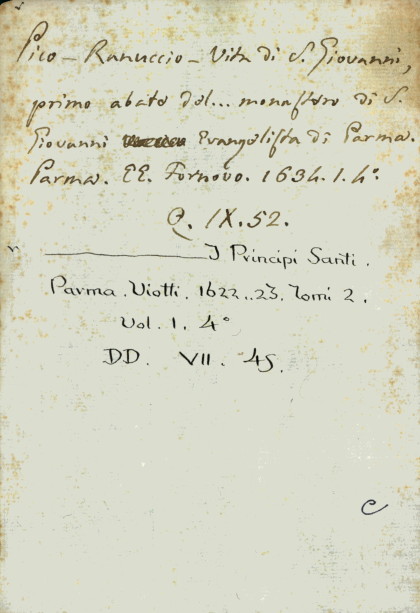 Pico - Ranuccio - Vita di S. Giovanni,
primo abate del... monastero di S.
Giovanni Evangelista di Parma.
Parma. EE. Fornovo. 1634. 1. 4°.
Q. IX. 52.
I Principi Santi.
Parma. Viotti. 1622..23. Tomi 2.
Vol. 1. 4°
DD. VII. 45.
C